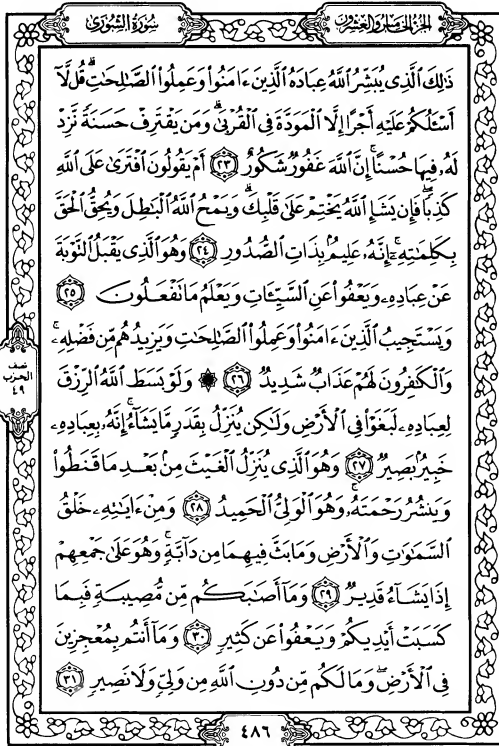 سُورَةُ الشُّورَىٰ
الجزء الخامس والعشرون
ذَٰلِكَ الَّذِي يُبَشِّرُ اللَّهُ عِبَادَهُ الَّذِينَ ءَامَنُوا۟ وَعَمِلُوا۟ الصَّـٰلِحَـٰتِ ۗ قُل لَّآ
أَسْـَٔلُكُمْ عَلَيْهِ أَجْرًا إِلَّا الْمَوَدَّةَ فِي الْقُرْبَىٰ ۗ وَمَن يَقْتَرِفْ حَسَنَةً نَّزِدْ
لَهُۥ فِيهَا حُسْنًا ۚ إِنَّ اللَّهَ غَفُورٌ شَكُورٌ ٢٣ أَمْ يَقُولُونَ افْتَرَىٰ عَلَى اللَّهِ
كَذِبًا ۖ فَإِن يَشَإِ اللَّهُ يَخْتِمْ عَلَىٰ قَلْبِكَ ۗ وَيَمْحُ اللَّهُ الْبَـٰطِلَ وَيُحِقُّ الْحَقَّ
بِكَلِمَـٰتِهِۦٓ ۚ إِنَّهُۥ عَلِيمٌۢ بِذَاتِ الصُّدُورِ ٢٤ وَهُوَ الَّذِي يَقْبَلُ التَّوْبَةَ
عَنْ عِبَادِهِۦ وَيَعْفُوا۟ عَنِ السَّيِّـَٔاتِ وَيَعْلَمُ مَا تَفْعَلُونَ ٢٥
وَيَسْتَجِيبُ الَّذِينَ ءَامَنُوا۟ وَعَمِلُوا۟ الصَّـٰلِحَـٰتِ وَيَزِيدُهُم مِّن فَضْلِهِۦ ۚ
وَالْكَـٰفِرُونَ لَهُمْ عَذَابٌ شَدِيدٌ ٢٦ ۞ وَلَوْ بَسَطَ اللَّهُ الرِّزْقَ
لِعِبَادِهِۦ لَبَغَوْا۟ فِي الْأَرْضِ وَلَـٰكِن يُنَزِّلُ بِقَدَرٍ مَّا يَشَآءُ ۚ إِنَّهُۥ بِعِبَادِهِۦ
خَبِيرٌۢ بَصِيرٌ ٢٧ وَهُوَ الَّذِي يُنَزِّلُ الْغَيْثَ مِنۢ بَعْدِ مَا قَنَطُوا۟
وَيَنشُرُ رَحْمَتَهُۥ ۚ وَهُوَ الْوَلِيُّ الْحَمِيدُ ٢٨ وَمِنْ ءَايَـٰتِهِۦ خَلْقُ
السَّمَـٰوَٰتِ وَالْأَرْضِ وَمَا بَثَّ فِيهِمَا مِن دَآبَّةٍ ۚ وَهُوَ عَلَىٰ جَمْعِهِمْ
إِذَا يَشَآءُ قَدِيرٌ ٢٩ وَمَآ أَصَـٰبَكُم مِّن مُّصِيبَةٍ فَبِمَا
كَسَبَتْ أَيْدِيكُمْ وَيَعْفُوا۟ عَن كَثِيرٍ ٣٠ وَمَآ أَنتُم بِمُعْجِزِينَ
فِي الْأَرْضِ ۖ وَمَا لَكُم مِّن دُونِ اللَّهِ مِن وَلِيٍّ وَلَا نَصِيرٍ ٣١
نصف
الحزب
٤٩
٤٨٦